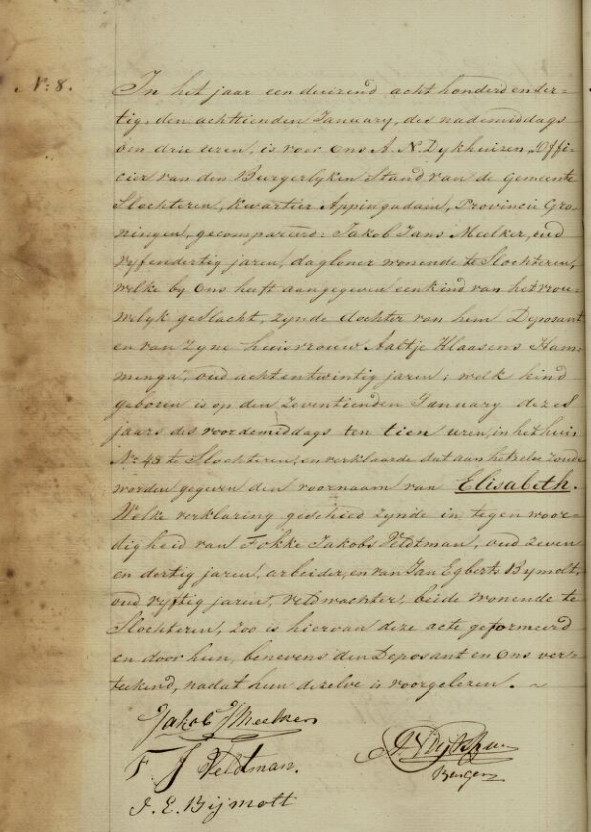 N: 8.
In het jaar een duizend acht honderd en der-
tig, den achttienden January, des nademiddags
om drie uren, is voor Ons A. N. Dykhuizen Offi-
cier van den Burgerlyken Stand van de Gemeente
Slochteren, Kwartier Appingadam, Provincie Gro-
ningen, gecompareerd: Jakob Jans Meelker, oud
vyfendertig jaren, dagloner wonende te Slochteren,
welke by Ons heeft aangegeven een kind van het vrou-
welyk geslacht, zynde dochter van hem Deposant
en van Zyne huisvrouw Aaltje Klaassens Ham-
minga, oud achtentwintig jaren; welk kind
geboren is op den Zeventienden January dezes
jaars des voordemiddags ten tien uren, in het huis
No 48 te Slochteren, en verklaarde dat aan hetzelve zoude
worden gegeven den voornaam van Elisabeth.
Welke verklaring geschied zynde in tegenwoor-
digheid van Fokke Jakobs Veldtman, oud zeven
en dertig jaren, arbeider, en van Jan Egberts Bymolt,
oud vyftig jaren, veldwachter, beide wonende te
Slochteren, zoo is hiervan deze acte geformeerd
en door hun, benevens den Deposant en Ons ver-
teekend, nadat hun dezelve is voorgelezen. ~
Jakob J Meelker
F. J Veldtman.
J. E. Bijmolt